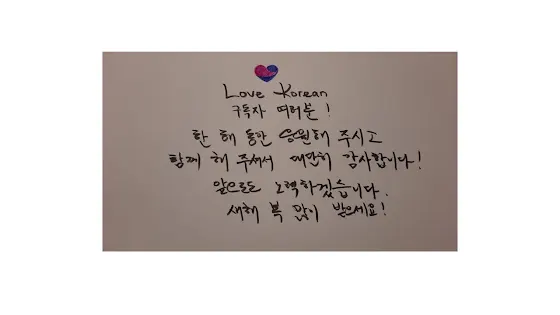 Love Korean
구독자 여러분 !
한 해 동안 응원해 주시고
함께 해 주셔서 대단히 감사합니다!
앞으로도 노력하겠습니다.
새해 복 많이 받으세요!